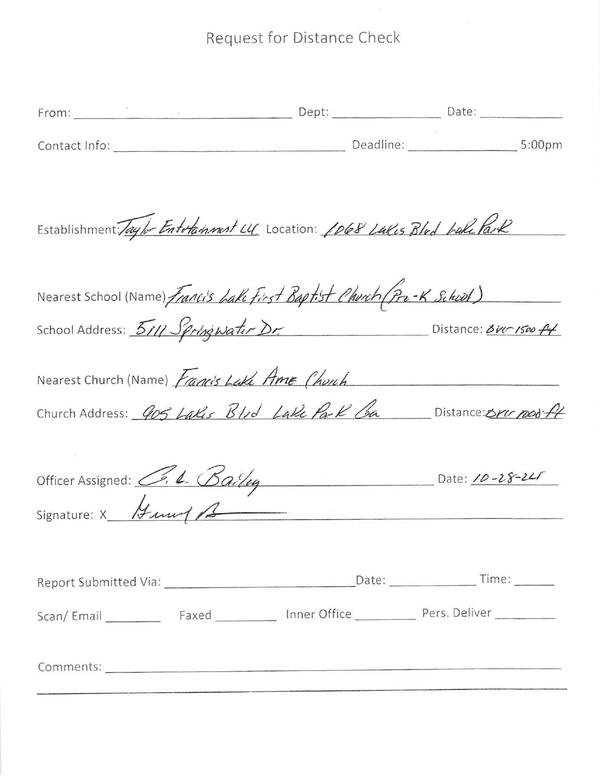 Request for Distance Check
From: Dept: Date:
Contact Info: Deadline: 5:00pm
Establishment: Taylor Entertainment LLC Location: 1068 Lakes Blvd Lake Park
Nearest School (Name) Francis Lake First Baptist Church (Pre-K School)
School Address: 5111 Springwater Dr. Distance: over 1500 ft
Nearest Church (Name) Francis Lake AME Church
Church Address: 905 Lakes Blvd Lake Park Ga Distance: over 1000 ft
Officer Assigned: G. L. Bailey Date: 10-28-24
Signature: X
Report Submitted Via: Date: Time:
Scan/ Email Faxed Inner Office Pers. Deliver
Comments: